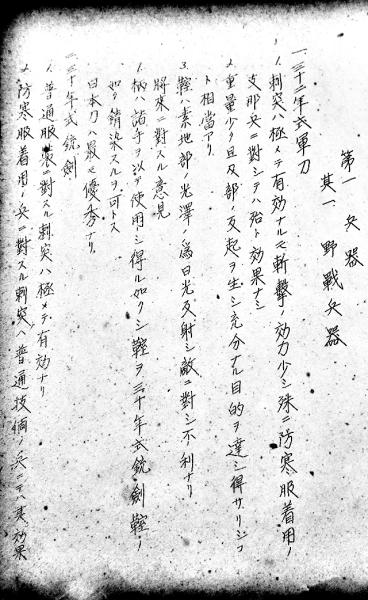 第一 兵器
其一、野戰兵器
一、三十二年式軍刀
1、刺突ハ極メテ有効ナルモ斬擊ノ効力少シ殊ニ防寒服着用ノ
支那兵ニ對シテハ殆ト効果ナシ
2、重量少ク且反部ノ反起ヲ生シ充分ナル目的ヲ達シ得サリシコ
ト相當アリ
3、鞘ハ素地部ノ光澤ノ爲日光反射シ敵ニ對シ不利ナリ
將來ニ對スル意見
1、柄ハ諸手ヲ以テ使用シ得ル如クシ鞘ヲ三十年式銃劍鞘ノ
如ク錆染スルヲ可トス
日本刀ハ最モ優秀ナリ
二、三十年式銃劍
1、普通服裝ニ對スル刺突ハ極メテ有効ナリ
2、防寒服着用ノ兵ニ對スル刺突ハ普通技倆ノ兵ニテハ其効果